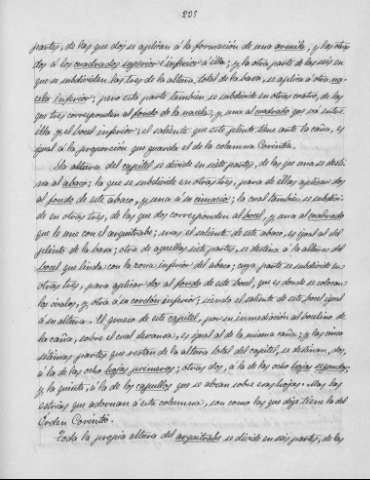 205
partes, de las que dos se aplican á la formación de una armilla, y las otras
dos á los cuadrados superior é inferior á ella; y la otra parte de las seis en
que se subdividen las tres de la altura total de la basa, se aplica á otra na-
cela inferior; pero esta parte tambien se subdivide en otras cuatro, de las
que tres corresponden al fondo de la nacela; y una al cuadrado que va entre
ella y el bocel inferior: el saliente que este plinto tiene ante la caña, es
igual á la proporcion que guarda el de la columna Corintia.
La altura del capitel se divide en siete partes, de las que una se desti-
na al abaco; la que se subdivide en otras tres, para de ellas aplicar dos
al fondo de este abaco, y una á su cimacio; la cual tambien se subdivi-
de en otras tres, de las que dos corresponden al bocel, y una al cuadrado
que le une con el arquitrabe; mas el saliente de este abaco, es igual al del
plinto de la basa; otra de aquellas siete partes, se destina á la altura del
bocel que linda con la zona inferior del abaco; cuya parte se subdivide en
otras tres, para aplicar dos al fondo de este bocel, que es donde se colocan
los óvalos, y otra á su cordon inferior; siendo el saliente de este bocel igual
á su altura. El grueso de este capitel, por su inmediacion al
la caña, sobre el cual descansa, es igual al de la misma caña; y las cinco
séptimas partes que restan de la altura total del capitel, se destinan, dos,
á la de las ocho hojas primeras; otras dos, á la de las ocho hojas segundas;
y la quinta, á la de los capullos que se abran sobre esas hojas. Mas las
estrías que adornan á esta columna, son como las que dije tiene la del
Orden Corintio.
Toda la propia altura del arquitrabe se divide en seis partes, de las